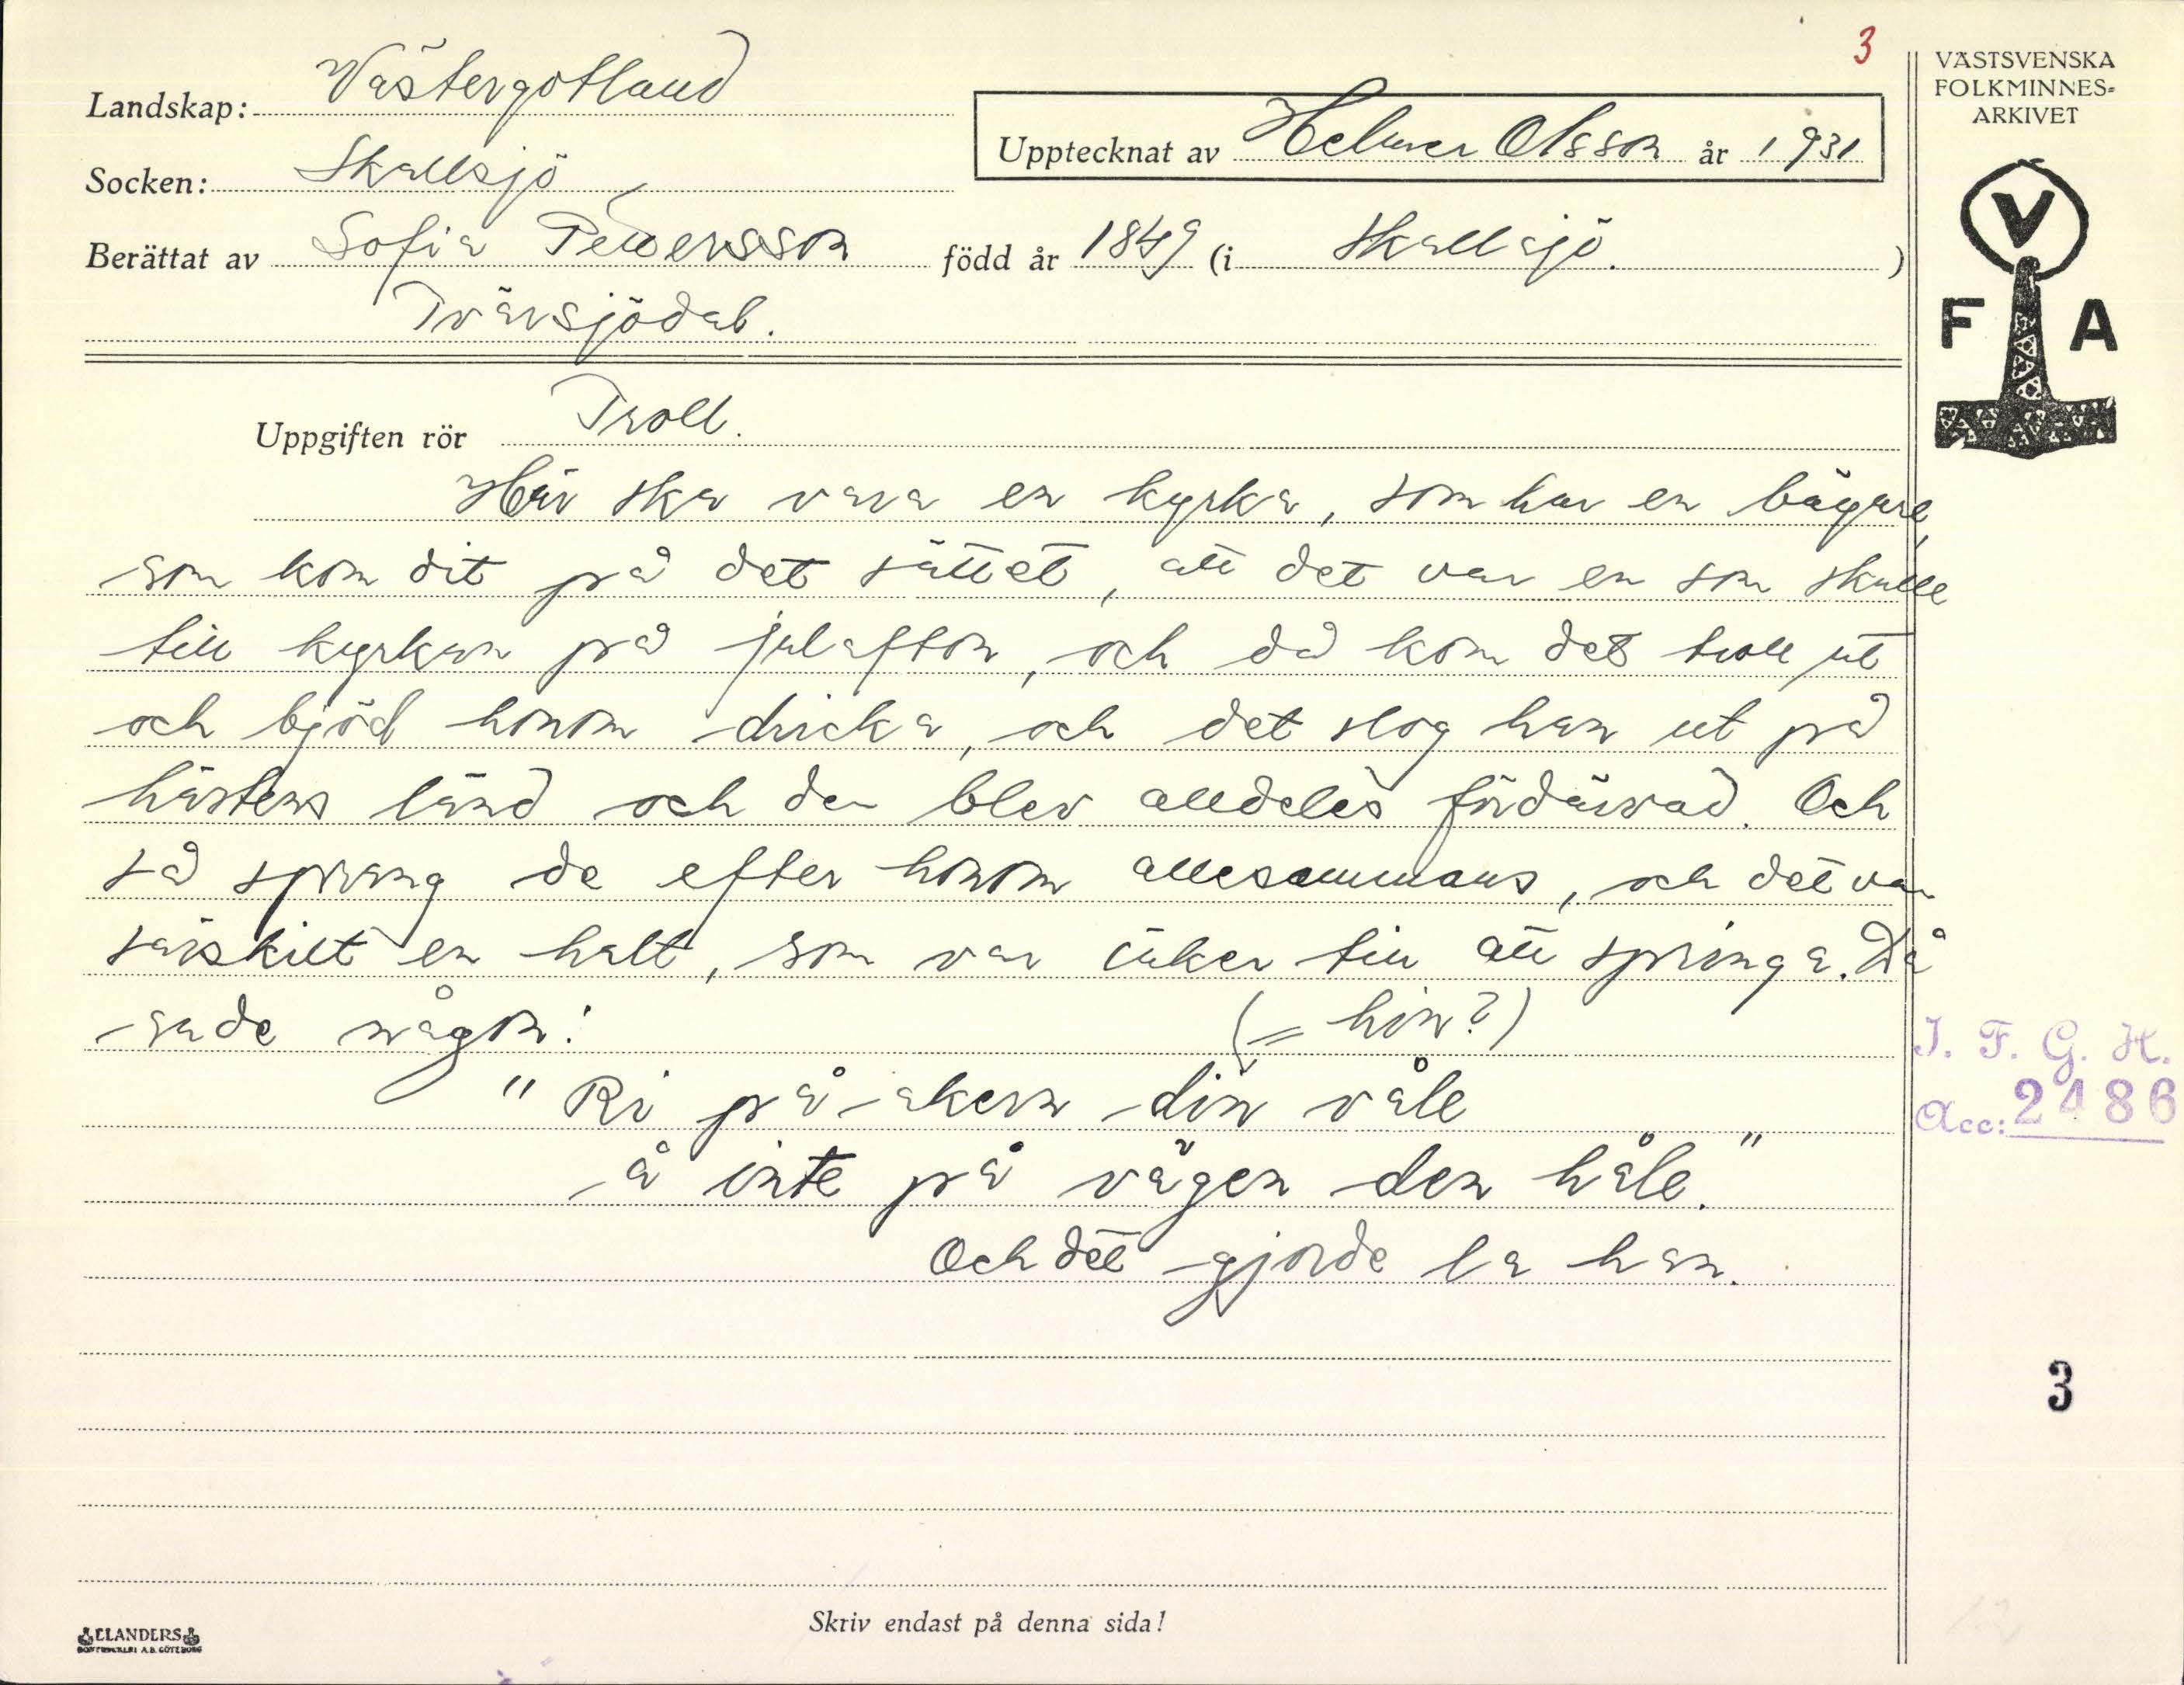 3
VÄSTSVENSKA
FOLKMINNES-
ARKIVET
Landskap: Västergötland
Upptecknat av Helmer Olsson år 1931
Socken: Skallsjö
Berättat av Sofia Pettersson född år 1849 (i Skallsjö.)
Tvärsjödal.
V
F A
Uppgiften rör Troll.
Här ska vara en kyrka, som har en bägare,
som kom dit på det sättet, att det var en som skulle
till kyrkan på julafton, och då kom det troll ut
och bjöd honom dricka, och det slog han ut på
hästens länd och den blev alldeles fördärvad. Och
så sprang de efter honom allesammans, och det var
särskilt en halt, som var säker till att springa. Då
sade någon:
(= hin?)
"Ri på åkern din våle
å inte på vägen den håle."
Och det gjorde la han.
I. F. G. H.
Acc: 2486
3
Skriv endast på denna sida!
ELANDERS
BOKTRYCKERI A.B. GÖTEBORG